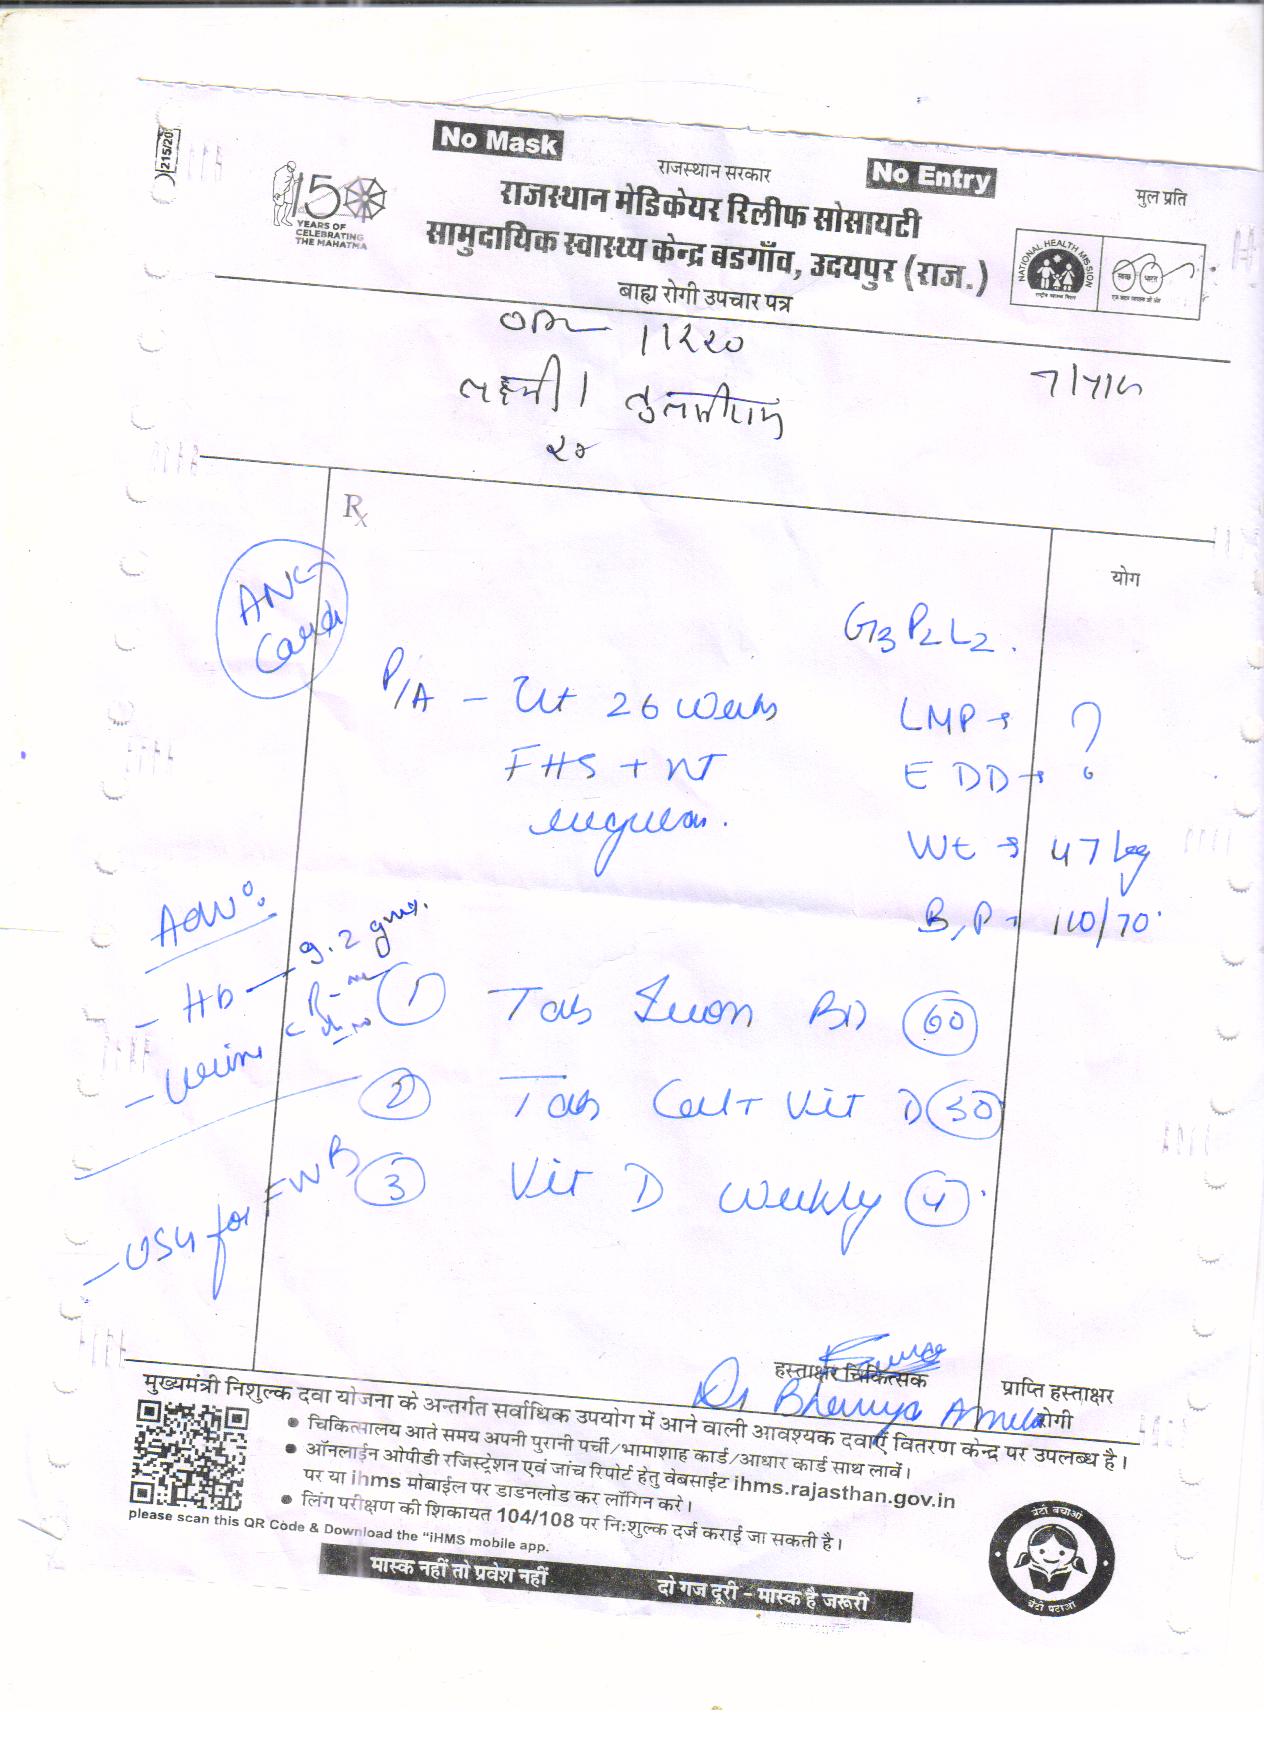 215/20
No Mask
No Entry
राजस्थान सरकार
मुल प्रति
राजस्थान मेडिकेयर रिलीफ सोसायटी
सामुदायिक स्वास्थ्य केन्द्र बडगाँव, उदयपुर (राज.)
बाह्य रोगी उपचार पत्र
150
YEARS OF
CELEBRATING
THE MAHATMA
NATIONAL HEALTH MISSION
राष्ट्रीय स्वास्थ्य मिशन
स्वच्छ भारत
एक कदम स्वच्छता की ओर
११२२०
लक्ष्मी । तुलसीराम
Rx
योग
ANC
Card
G3 P2 L2.
P/A - Ut 26 weeks
LMP → ?
FHS + nt
EDD →
regular.
Wt → 47 kg
B.P → 110/70
Adv:
- Hb — 9.2 gm%.
- Urine
1 Tab Iron BD 60
2 Tab Cal + Vit D 30
3 Vit D weekly 4
- USG for FWB
हस्ताक्षर चिकित्सक
Dr Bhavya
प्राप्ति हस्ताक्षर
रोगी
मुख्यमंत्री निशुल्क दवा योजना के अन्तर्गत सर्वाधिक उपयोग में आने वाली आवश्यक दवाएँ वितरण केन्द्र पर उपलब्ध है।
● चिकित्सालय आते समय अपनी पुरानी पर्ची/भामाशाह कार्ड/आधार कार्ड साथ लावें।
● ऑनलाईन ओपीडी रजिस्ट्रेशन एवं जांच रिपोर्ट हेतु वेबसाईट ihms.rajasthan.gov.in
पर या ihms मोबाईल पर डाडनलोड कर लॉगिन करे।
● लिंग परीक्षण की शिकायत 104/108 पर नि:शुल्क दर्ज कराई जा सकती है।
please scan this QR Code & Download the "iHMS mobile app.
मास्क नहीं तो प्रवेश नहीं
दो गज दूरी – मास्क है जरूरी
बेटी बचाओ
बेटी पढाओ